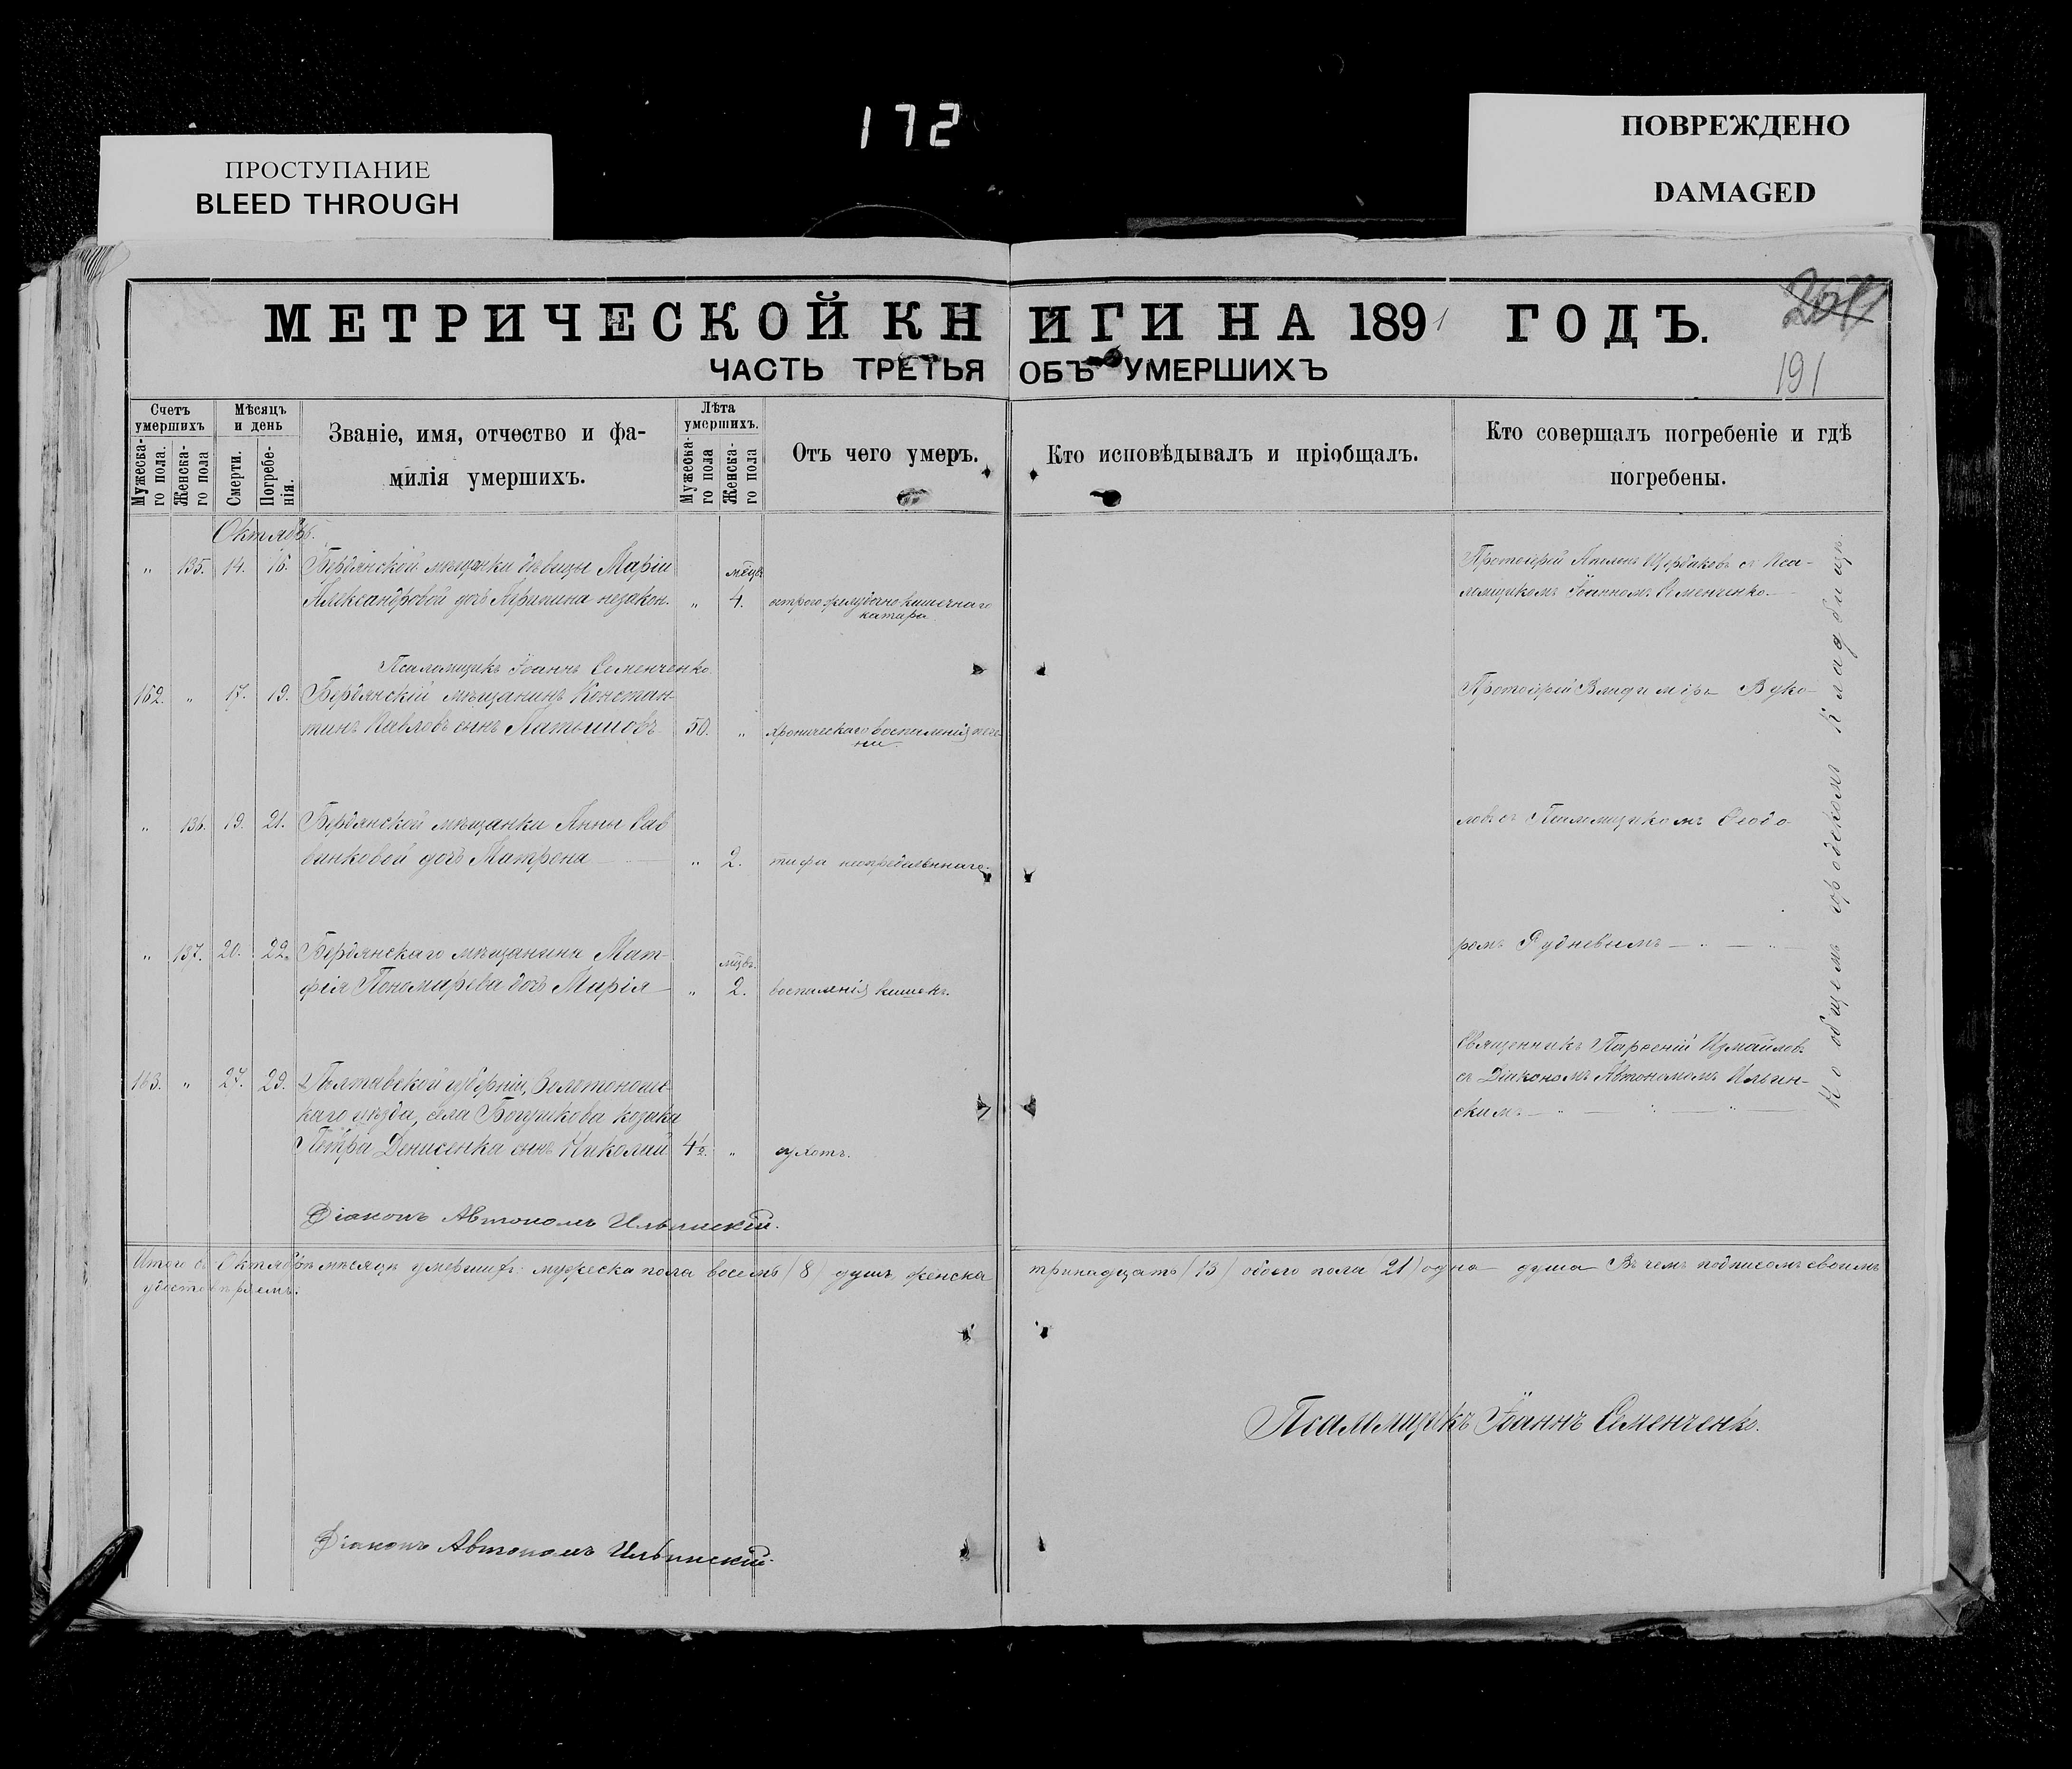 172
ПРОСТУПАНИЕ
BLEED THROUGH
ПОВРЕЖДЕНО
DAMAGED
МЕТРИЧЕСКОЙ КНИГИ НА 1891 ГОДЪ.
191
ЧАСТЬ ТРЕТЬЯ ОБЪ УМЕРШИХЪ
Счетъ умершихъ
Мужескаго пола.
Женскаго пола
Мѣсяцъ и день
Смерти.
Погребенія.
Званіе, имя, отчество и фамилія умершихъ.
Лѣта умершихъ.
Мужескаго пола
Женскаго пола
Отъ чего умеръ.
Кто исповѣдывалъ и пріобщалъ.
Кто совершалъ погребеніе и гдѣ погребены.
Октябрь.
" 135. 14. 16. Бердянской мѣщанки дѣвицы Маріи
Александровой дочь Агрипина незакон. " мѣсяц. 4. острого желудочно-кишечнаго катара
Протоіерей Щербаковъ съ Псаломщикомъ Іоанномъ Семенченко.
Псаломщикъ Іоаннъ Семенченко.
162. " 17. 19. Бердянскій мѣщанинъ Константинъ Павловъ сынъ Латышовъ 50. " хроническаго воспаленія печени.
Протоіерей Владиміръ Вуколовъ съ Псаломщикомъ Ѳеодоромъ Рудневымъ
" 136. 19. 21. Бердянской мѣщанки Анны Саввинковой дочь Матрона " 2. тифа неопредѣленнаго.
" 137. 20. 22. Бердянскаго мѣщанина Матфія Пономарева дочь Марія " мѣсяц. 2. воспаленія кишекъ.
163. " 27. 29. Полтавской губерніи, Золотоношскаго уѣзда, села Богушкова козака
Петра Денисенка сынъ Николай 4½. " сухотъ.
Священникъ Парѳеній Измайловъ
съ Діакономъ Автономомъ Ильинскимъ
На общемъ городскомъ кладбищѣ.
Діаконъ Автономъ Ильинскій.
Итого въ Октябрѣ мѣсяцѣ умершихъ: мужеска пола восемь (8) душъ, женска тринадцать (13) обоего пола (21) одна душа Въ чемъ подписомъ своимъ
удостовѣряемъ:
Псаломщикъ Іоаннъ Семенченко.
Діаконъ Автономъ Ильинскій.